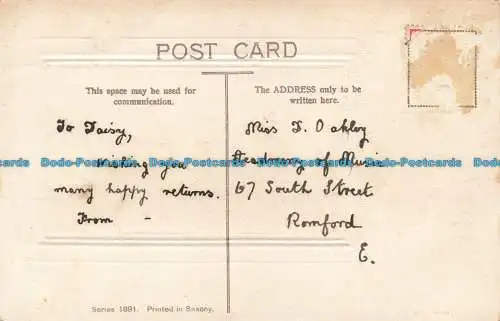 POST CARD
This space may be used for
communication.
The ADDRESS only to be
written here.
To Daisy,
Wishing you
many happy returns.
From -
Miss D. Oakley
Academy of Music
67 South Street
Romford
E.
Dodo-Postcards Dodo-Postcards Dodo-Postcards Dodo-Postcards
Series 1891. Printed in Saxony.